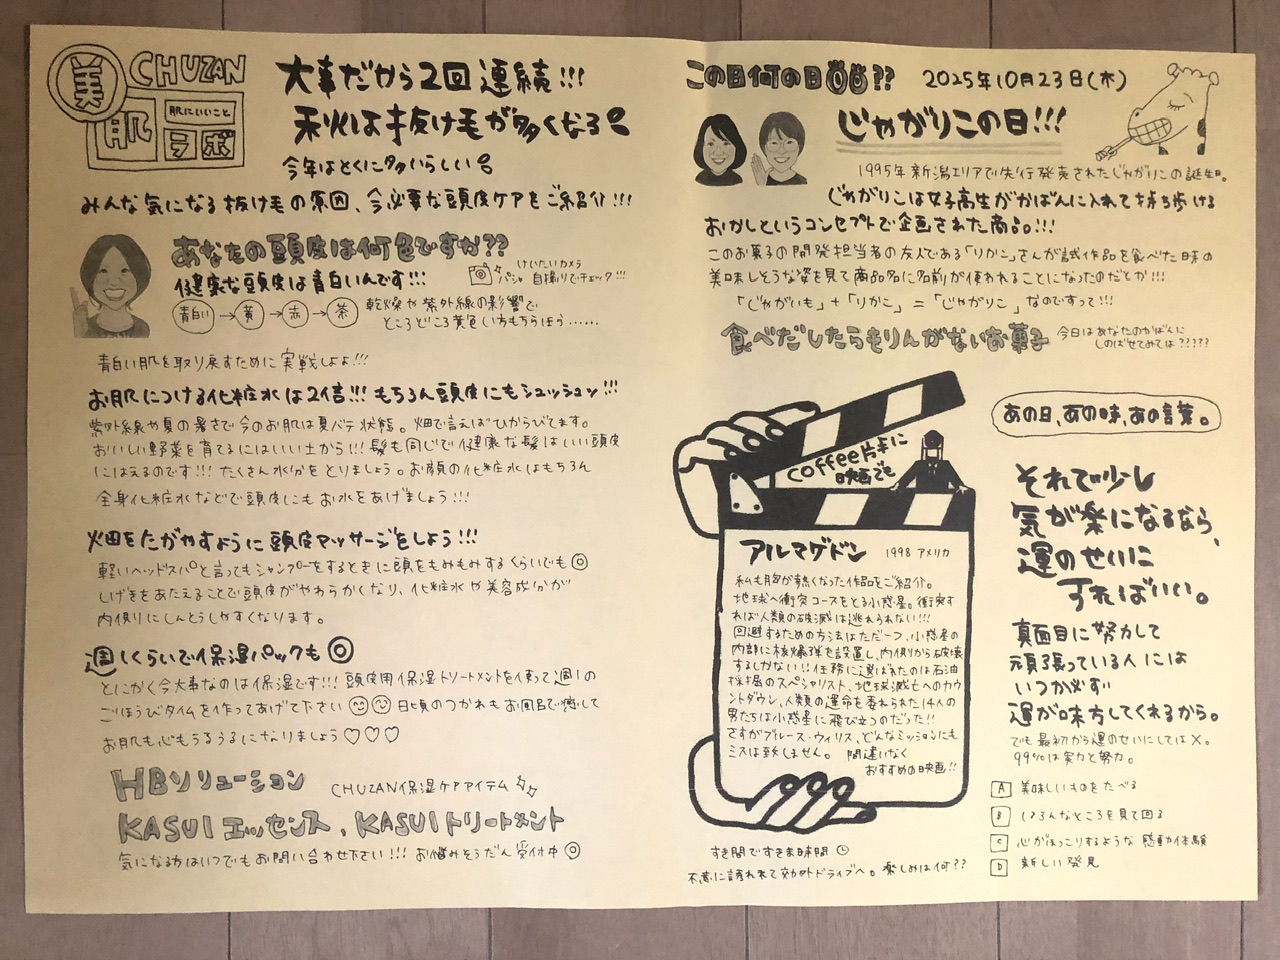 美
CHUZAN
肌
肌にいいこと
ラボ
大事だから2回連続!!!
秋は抜け毛が多くなる
今年はとくに多いらしい
みんな気になる抜け毛の原因、今必要な頭皮ケアをご紹介!!!
あなたの頭皮は何色ですか??
健康な頭皮は青白いんです!!!
パシャ
けいたいカメラ
自撮りでチェック!!!
青白い→黄→赤→茶
乾燥や紫外線の影響で
ところどころ黄色い方もちらほら……
青白い肌を取り戻すために実戦しよ!!!
お肌につける化粧水は2倍!!!もちろん頭皮にもシュッシュッ!!!
紫外線や夏の暑さで今のお肌は夏バテ状態。畑で言えばひからびてます。
おいしい野菜を育てるにはいい土から!!!髪も同じで健康な髪はいい頭皮
にはえるのです!!!たくさん水分をとりましょう。お顔の化粧水はもちろん
全身化粧水などで頭皮にもお水をあげましょう!!!
畑をたがやすように頭皮マッサージをしよう!!!
軽いヘッドスパと言ってもシャンプーをするときに頭をもみもみするくらいでも◎
しげきをあたえることで頭皮がやわらかくなり、化粧水や美容成分が
内側りにしんとうしやすくなります。
週1くらいで保湿パックも◎
とにかく今大事なのは保湿です!!!頭皮用保湿トリートメントを使って週1の
ごほうびタイムを作ってあげて下さい 日頃のつかれもお風呂で癒して
お肌も心もうるうるになりましょう♡♡♡
HBソリューション
CHUZAN保湿ケアアイテム
KASUIエッセンス、KASUIトリートメント
気になる方はいつでもお問い合わせ下さい!!!お悩みそうだん受付中◎
この日何の日??
2025年10月23日(木)
じゃがりこの日!!!
1995年新潟エリアで先行発売されたじゃがりこの誕生日。
じゃがりこは女子高生がかばんに入れて持ち歩ける
おかしというコンセプトで企画された商品!!!
このお菓子の開発担当者の友人である「りかこ」さんが試作品を食べた時の
美味しそうな姿を見て商品名に名前が使われることになったのだとか!!!
「じゃがいも」+「りかこ」=「じゃがりこ」なのですって!!!
食べだしたらもりんがないお菓子
今日はあなたのかばんに
しのばせてみては?????
coffee片手に
映画でも
アルマゲドン
1998 アメリカ
私も胸が熱くなった作品をご紹介。
地球へ衝突コースをとる小惑星。衝突す
れば人類の破滅は逃れられない!!!
回避するための方法はただ一つ、小惑星の
内部に核爆弾を設置し、内側から破壊
するしかない!!任務に選ばれたのは石油
採掘のスペシャリスト、地球滅亡へのカウ
ントダウン、人類の運命を委ねられた14人の
男たちは小惑星に飛び立つのだった!!
さすがブルース・ウィリス、どんなミッションにも
ミスは致しません。 間違いなく
おすすめの映画!!
すき間ですきま時間
不意に誘われて郊外ドライブへ。楽しみは何??
あの日、あの時、あの言葉。
それで少し
気が楽になるなら、
運のせいに
すればいい。
真面目に努力して
頑張っている人には
いつか必ず
運が味方してくれるから。
でも最初から運のせいにしては×。
99%は実力と努力。
A 美味しいものをたべる
B いろんなところを見て回る
C 心がほっこりするような感動体験
D 新しい発見